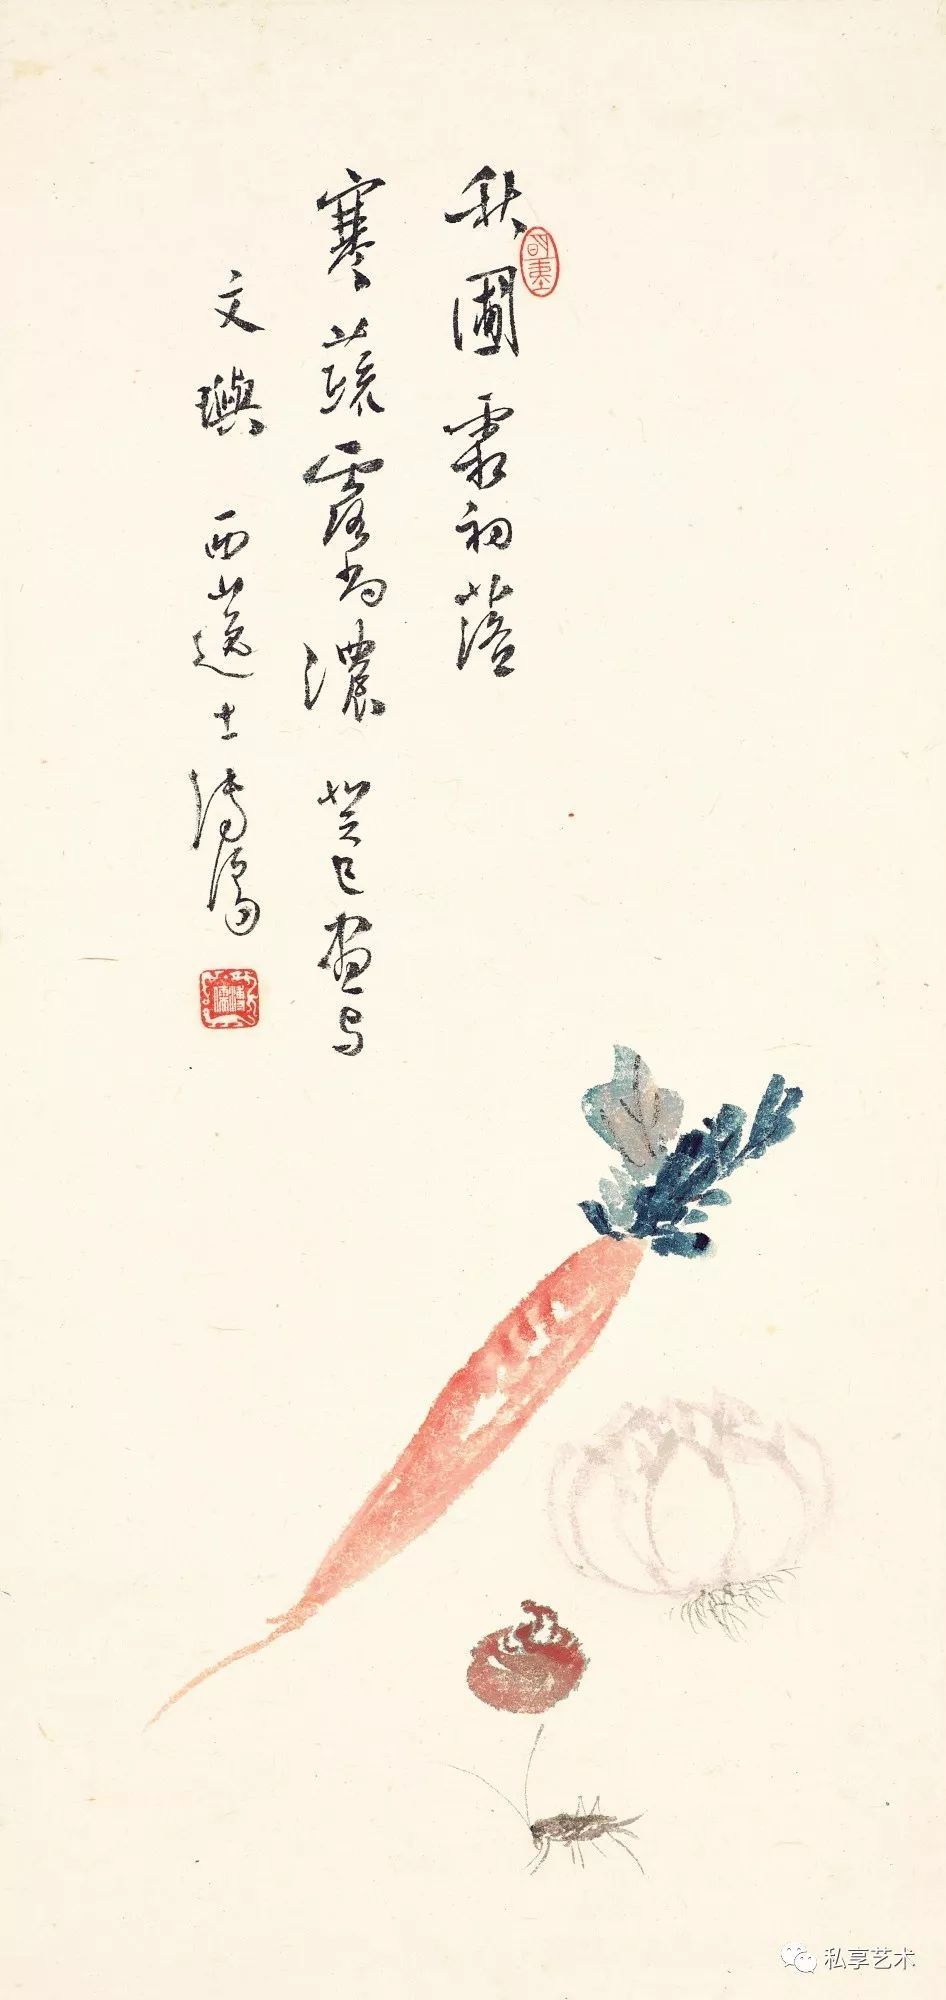 秋圃霜初落
寒蔬露尚濃 癸巳畫与
文璵 西山逸士溥儒
溥儒
私享艺术